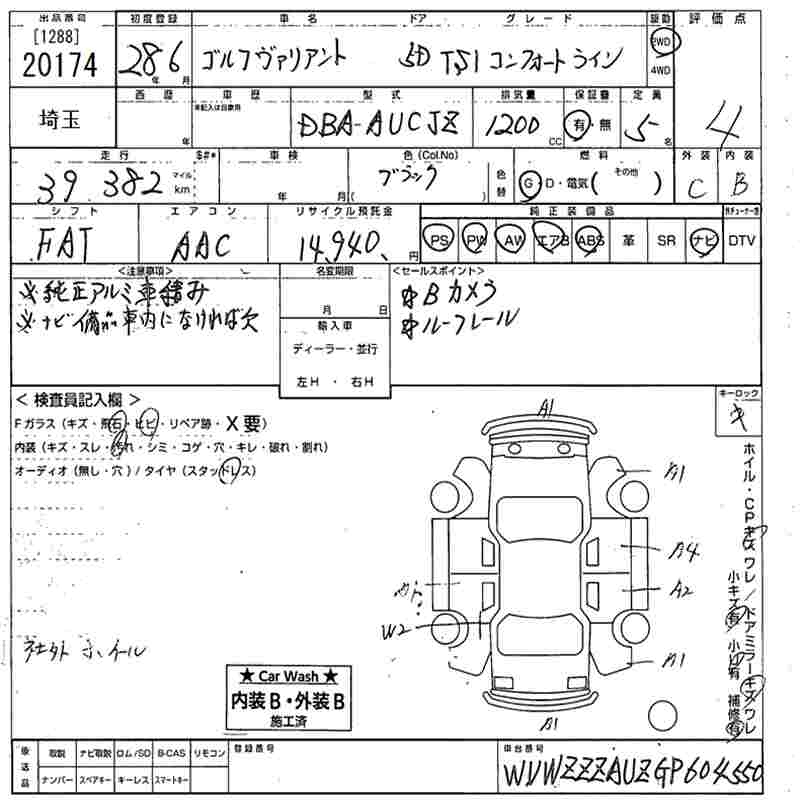 出品番号 初度登録 車名 ドア グレード 駆動 評価点
[1288]
20174 28 6 ゴルフヴァリアント 5D TSI コンフォートライン 2WD
年 月 4WD
埼玉 西暦 車歴 型式 排気量 保証書 定員
※記入は自家用
DBA-AUCJZ 1200 有・無 5 4
年 CC 名
走行 $#* 車検 色(Col.No) 燃料 外装 内装
39 382 マイル ブラック 色替 G・D・電気( その他 ) C B
km 年 月 ( )
シフト エアコン リサイクル預託金 純正装備品
FAT AAC 14,940 円 PS PW AW エアB ABS 革 SR ナビ DTV
<注意事項> 名変期限 <セールスポイント>
※純正アルミ車積み ※Bカメラ
※ナビ備品車内になければ欠 月 日 ※ルーフレール
輸入車
ディーラー・並行
左H・右H
< 検査員記入欄 > キーロック
Fガラス(キズ・飛石・ヒビ・リペア跡・X要) キ
内装(キズ・スレ・汚れ・シミ・コゲ・穴・キレ・破れ・割れ)
オーディオ(無し・穴)/タイヤ(スタッドレス)
A1
A1
A4
A2
W2
A1
ホイル・CPキズワレ/ドアミラーキズワレ
小キズ有 小凹有 補修有
社外ホイール
★ Car Wash ★
内装B・外装B
施工済
後送品 取説 ナビ取説 ロム/SD B-CAS リモコン 登録番号 車台番号
ナンバー スペアキー キーレス スマートキー WVWZZZAUZGP604550